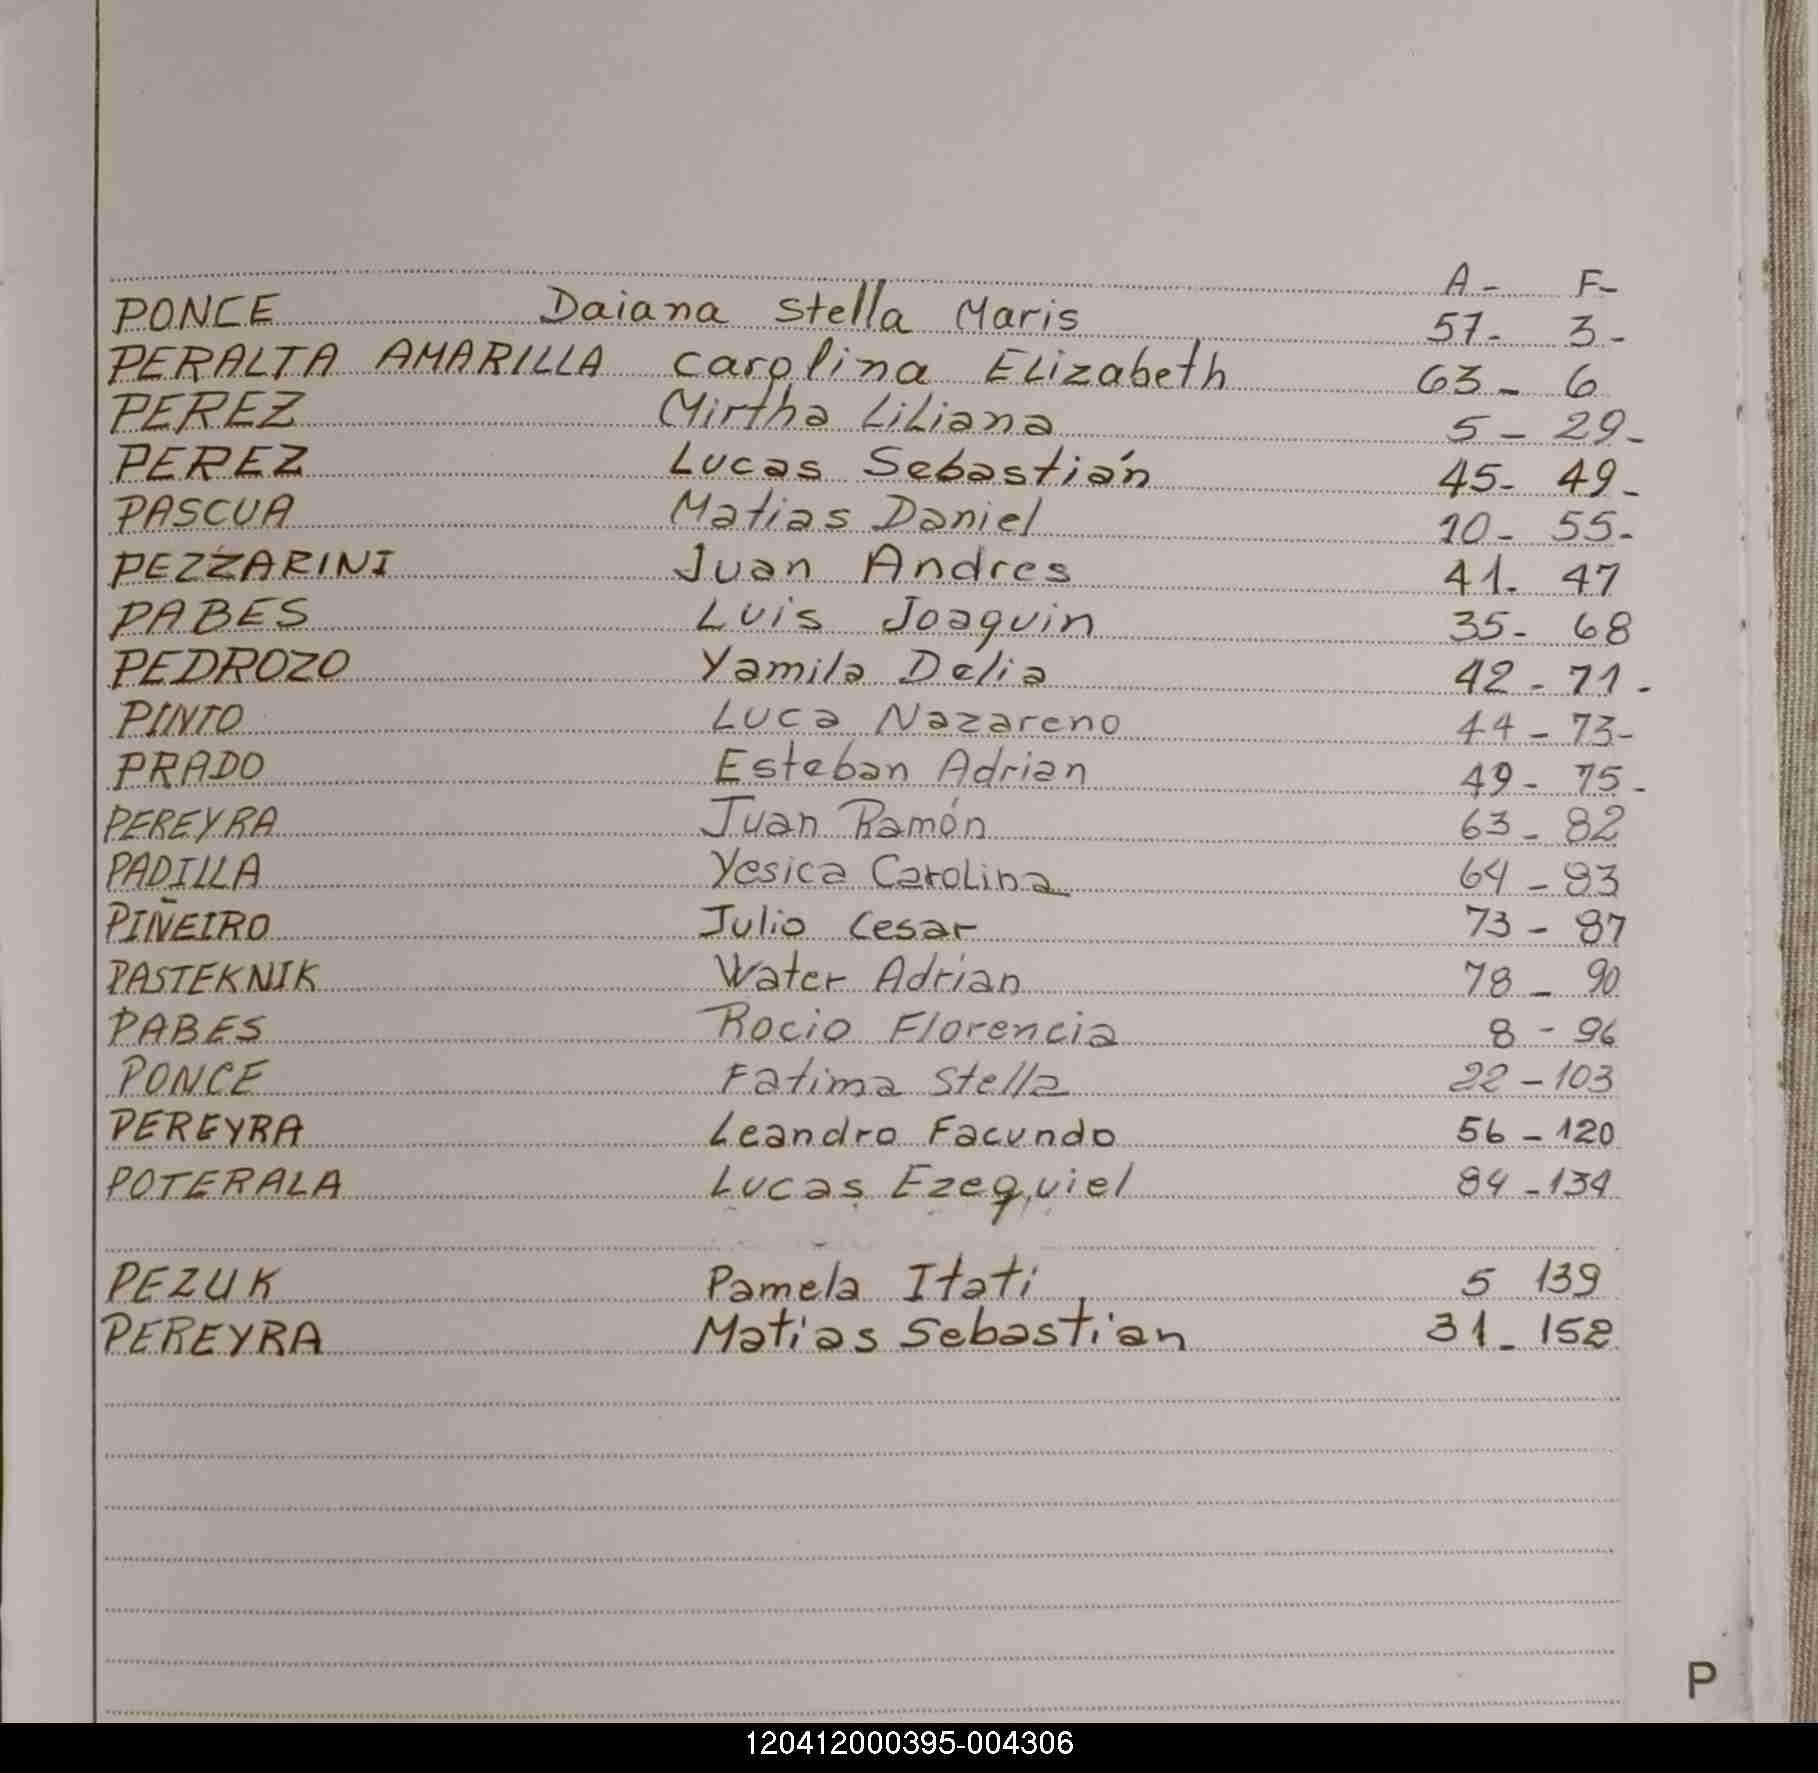 A- F-
PONCE Daiana Stella Maris 57- 3-
PERALTA AMARILLA Carolina Elizabeth 63- 6
PEREZ Mirtha Liliana 5- 29-
PEREZ Lucas Sebastián 45- 49-
PASCUA Matias Daniel 10- 55-
PEZZARINI Juan Andres 41- 47
PABES Luis Joaquin 35- 68
PEDROZO Yamila Delia 42- 71-
PINTO Luca Nazareno 44- 73-
PRADO Esteban Adrian 49- 75-
PEREYRA Juan Ramón 63- 82
PADILLA Yesica Carolina 64- 83
PIÑEIRO Julio Cesar 73- 87
PASTEKNIK Water Adrian 78- 90
PABES Rocio Florencia 8- 96
PONCE Fatima Stella 22-103
PEREYRA Leandro Facundo 56-120
POTERALA Lucas Ezequiel 84-134
PEZUK Pamela Itati 5 139
PEREYRA Matias Sebastian 31-152
P
120412000395-004306